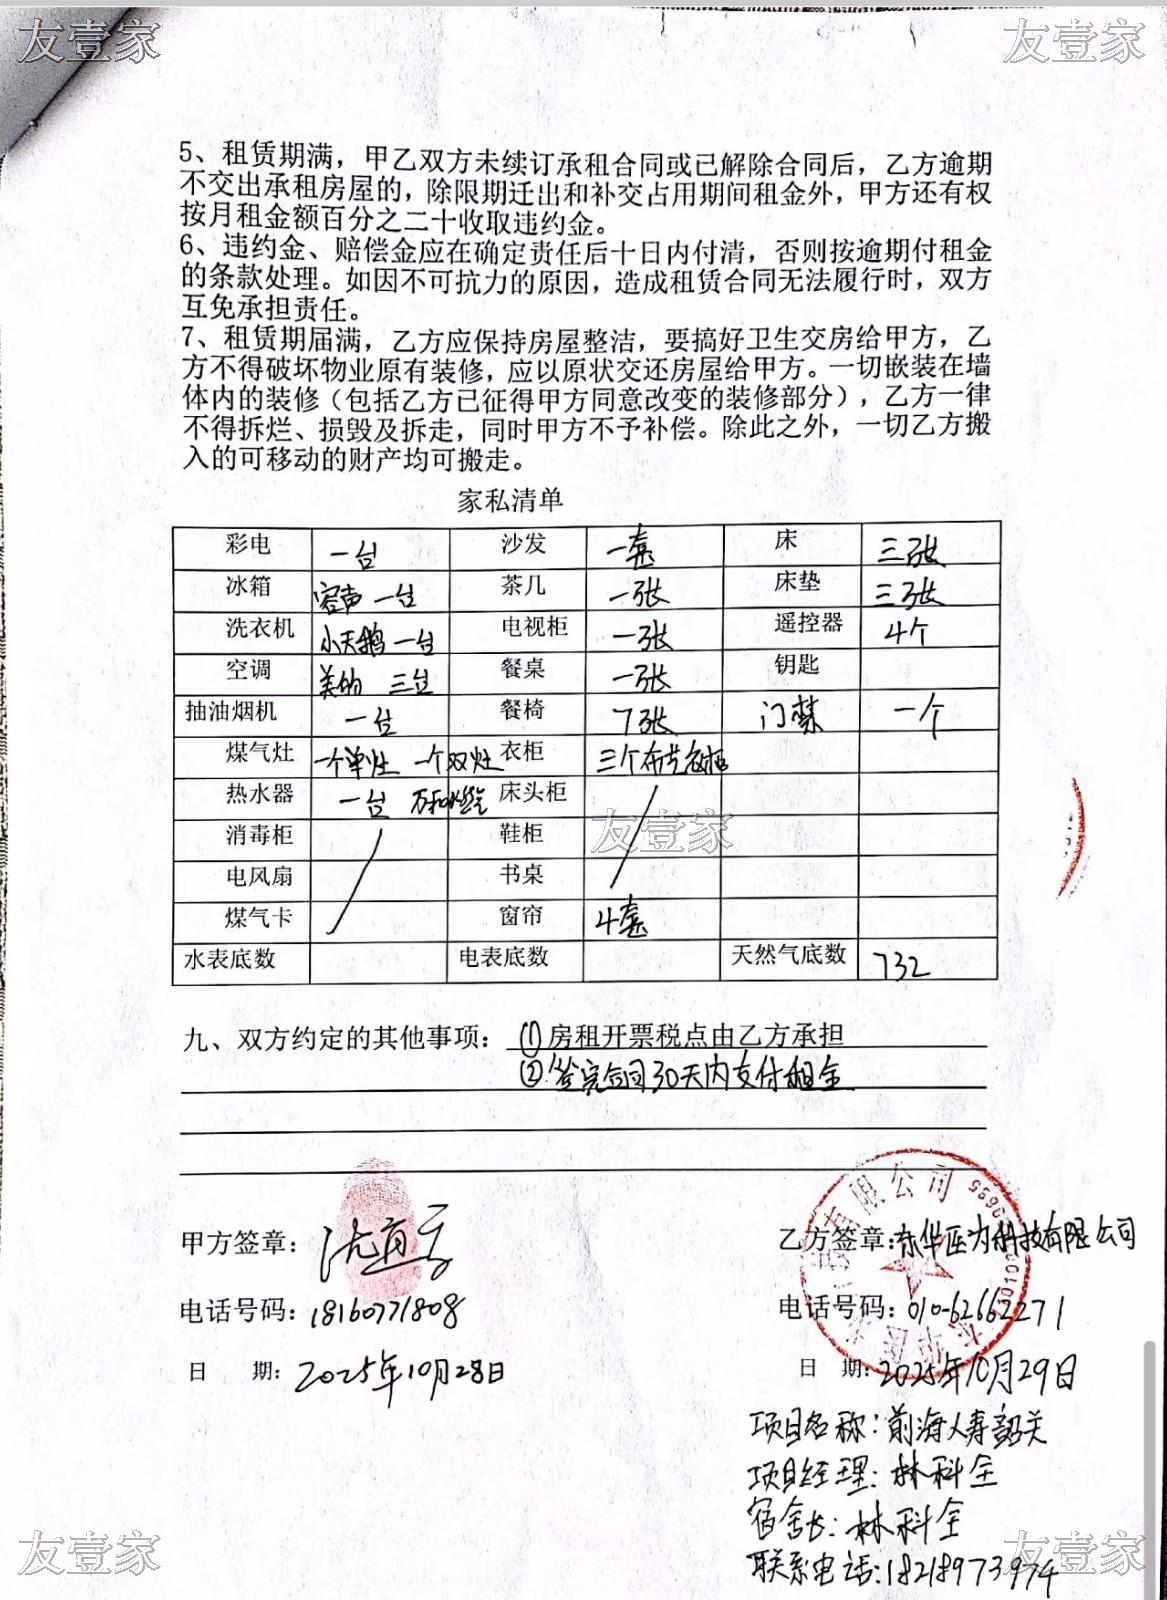 友壹家 友壹家
5、租赁期满，甲乙双方未续订承租合同或已解除合同后，乙方逾期
不交出承租房屋的，除限期迁出和补交占用期间租金外，甲方还有权
按月租金额百分之二十收取违约金。
6、违约金、赔偿金应在确定责任后十日内付清，否则按逾期付租金
的条款处理。如因不可抗力的原因，造成租赁合同无法履行时，双方
互免承担责任。
7、租赁期届满，乙方应保持房屋整洁，要搞好卫生交房给甲方，乙
方不得破坏物业原有装修，应以原状交还房屋给甲方。一切嵌装在墙
体内的装修（包括乙方已征得甲方同意改变的装修部分），乙方一律
不得拆烂、损毁及拆走，同时甲方不予补偿。除此之外，一切乙方搬
入的可移动的财产均可搬走。
家私清单
彩电 一台 沙发 一套 床 三张
冰箱 容声 一台 茶几 一张 床垫 三张
洗衣机 小天鹅 一台 电视柜 一张 遥控器 4个
空调 美的 三台 餐桌 一张 钥匙
抽油烟机 一台 餐椅 7张 门禁 一个
煤气灶 一个单灶 一个双灶 衣柜 三个布艺衣柜
热水器 一台 万和燃气 床头柜
消毒柜 鞋柜
友壹家
电风扇 书桌
煤气卡 窗帘 4套
水表底数 电表底数 天然气底数 732
九、双方约定的其他事项：① 房租开票税点由乙方承担
② 签完合同30天内支付租金
有限公司
甲方签章： 乙方签章：东华医为科技有限公司
电话号码：18160771808 电话号码：010-62662271
日 期：2025年10月28日 日 期：2025年10月29日
项目名称：前海人寿韶关
项目经理：林科全
宿舍长：林科全
联系电话：18218973974
友壹家 友壹家